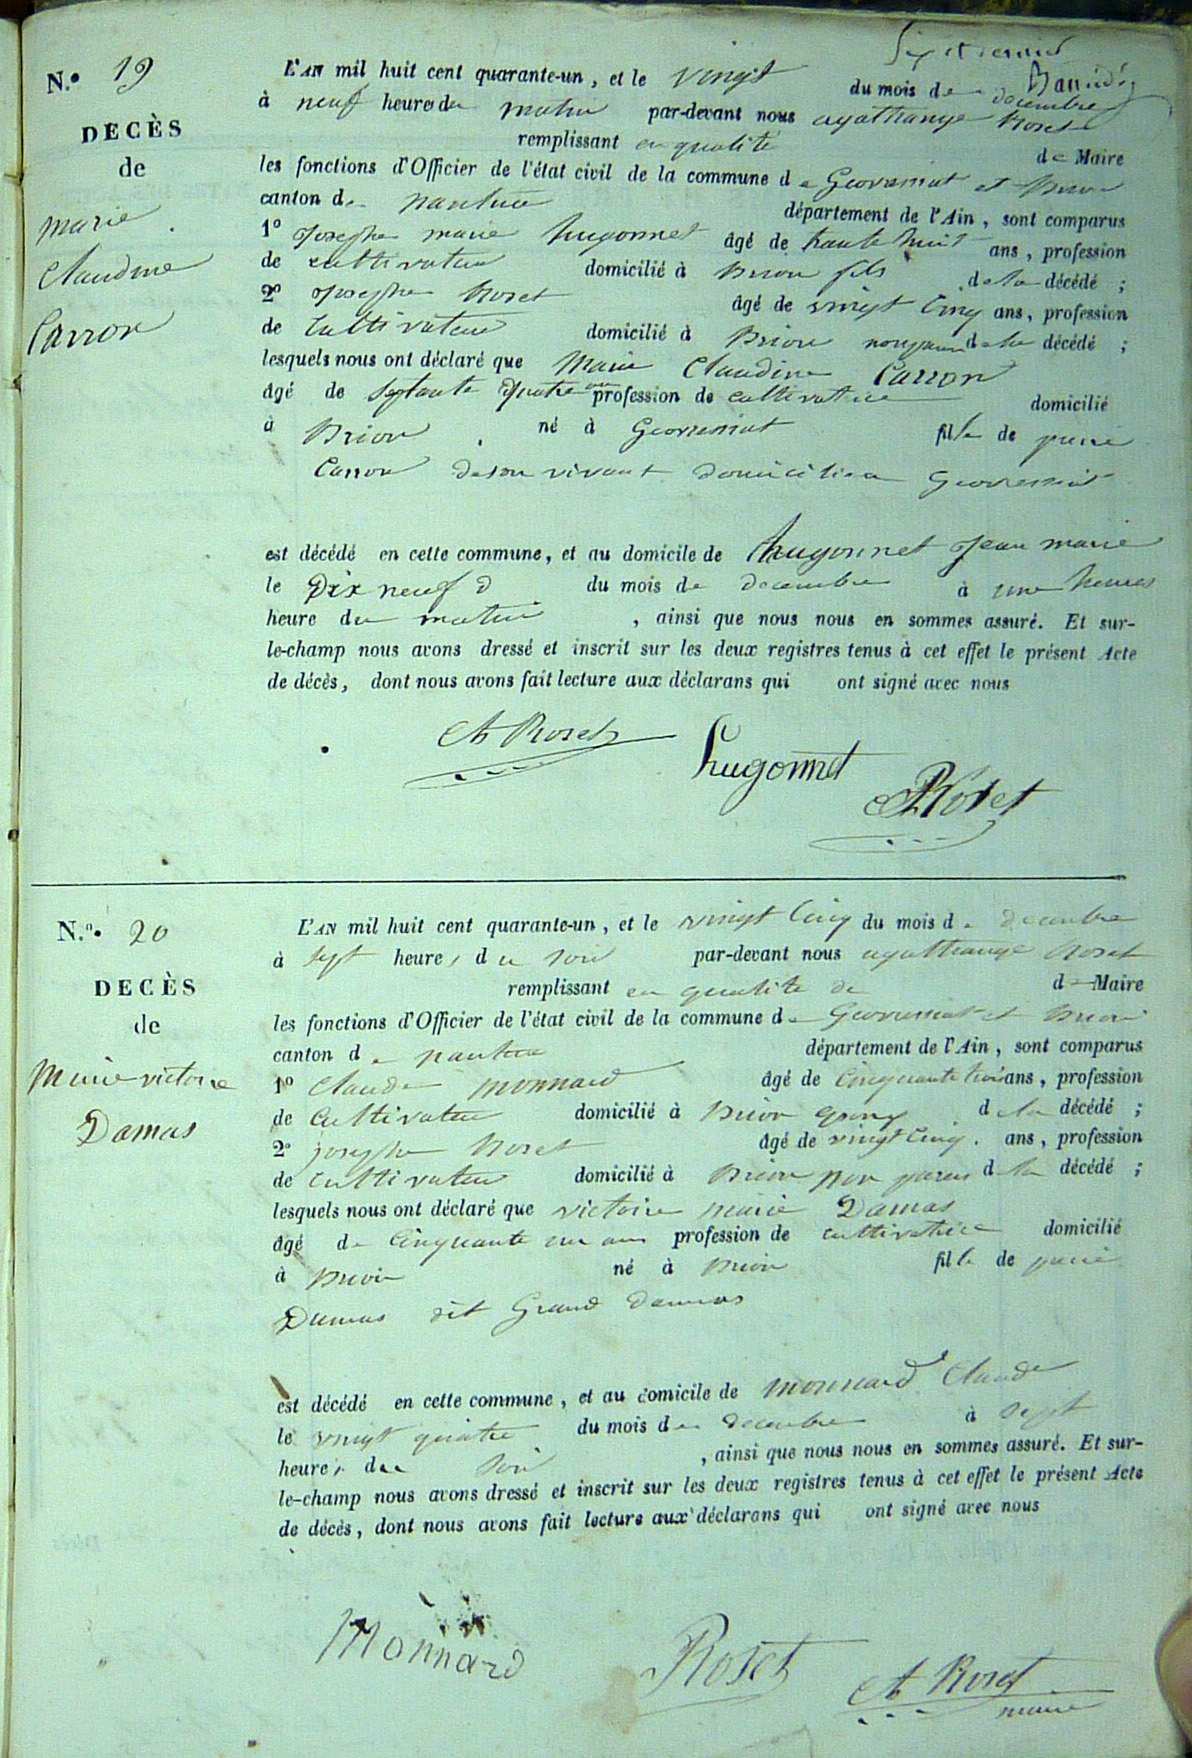 Six et dernier
N.º 19
DECÈS
de
marie
Claudine
Carron
L'AN mil huit cent quarante-un, et le vingt du mois de decembre
à neuf heures du matin par-devant nous agathange Roset
remplissant en qualité de Maire
les fonctions d'Officier de l'état civil de la commune de Geovressiat et Brion
canton de nantua département de l'Ain, sont comparus
1º Joseph marie hugonnet âgé de trente huit ans, profession
de cultivateur domicilié à Brion fils de la décédé ;
2º Joseph Roset âgé de vingt cinq ans, profession
de Cultivateur domicilié à Brion non parent de la décédé ;
lesquels nous ont déclaré que Marie Claudine Carron
âgé de Septante quatre ans profession de cultivatrice domicilié
à Brion né à Geovressiat fille de pierre
Carron de son vivant domicilié a Geovressiat
est décédé en cette commune, et au domicile de hugonnet Jean marie
le Dix neuf du mois de decembre à une heures
heure du matin , ainsi que nous nous en sommes assuré. Et sur-
le-champ nous avons dressé et inscrit sur les deux registres tenus à cet effet le présent Acte
de décès, dont nous avons fait lecture aux déclarans qui ont signé avec nous
Ath Roset
hugonnet
Roset
N.º 20
DECÈS
de
Marie victoire
Damas
L'AN mil huit cent quarante-un, et le vingt Cinq du mois de decembre
à sept heures du soir par-devant nous agathange Roset
remplissant en qualité de de Maire
les fonctions d'Officier de l'état civil de la commune de Geovressiat et Brion
canton de nantua département de l'Ain, sont comparus
1º Claude monnard âgé de Cinquante trois ans, profession
de Cultivateur domicilié à Brion époux de la décédé ;
2º joseph Roset âgé de vingt Cinq ans, profession
de Cultivateur domicilié à Brion non parent de la décédé ;
lesquels nous ont déclaré que victoire marie Damas
âgé de Cinquante un ans profession de cultivatrice domicilié
à Brion né à Brion fille de pierre
Damas dit Grand Damas
est décédé en cette commune, et au domicile de monnard Claude
le vingt quatre du mois de decembre à sept
heures du soir , ainsi que nous nous en sommes assuré. Et sur-
le-champ nous avons dressé et inscrit sur les deux registres tenus à cet effet le présent Acte
de décès, dont nous avons fait lecture aux déclarans qui ont signé avec nous
Monnard
Roset
Ath Roset
maire